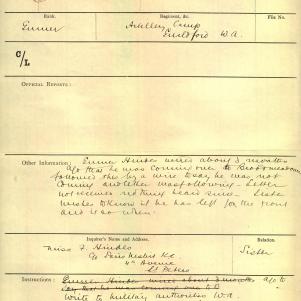 Rank. Regiment, &c. File No.
Gunner Artillery Camp
Guildford W.A.
C/L
OFFICIAL REPORTS:
Other Information: Gunner Hindes wired about 3 months
ago that he was coming over to Broadmeadows
followed this by a wire to say he was not
coming and letter was following - Letter
not received nothing heard since. Sister
wishes to know if he has left for the front
and if so when?
Inquirer's Name and Address. Relation
Miss F. Hindes Sister
4th Avenue
St Peters
Instructions: Gunner Hindes wired about 3 months ago to
say that he was coming over to B
Write to military authorities W.A